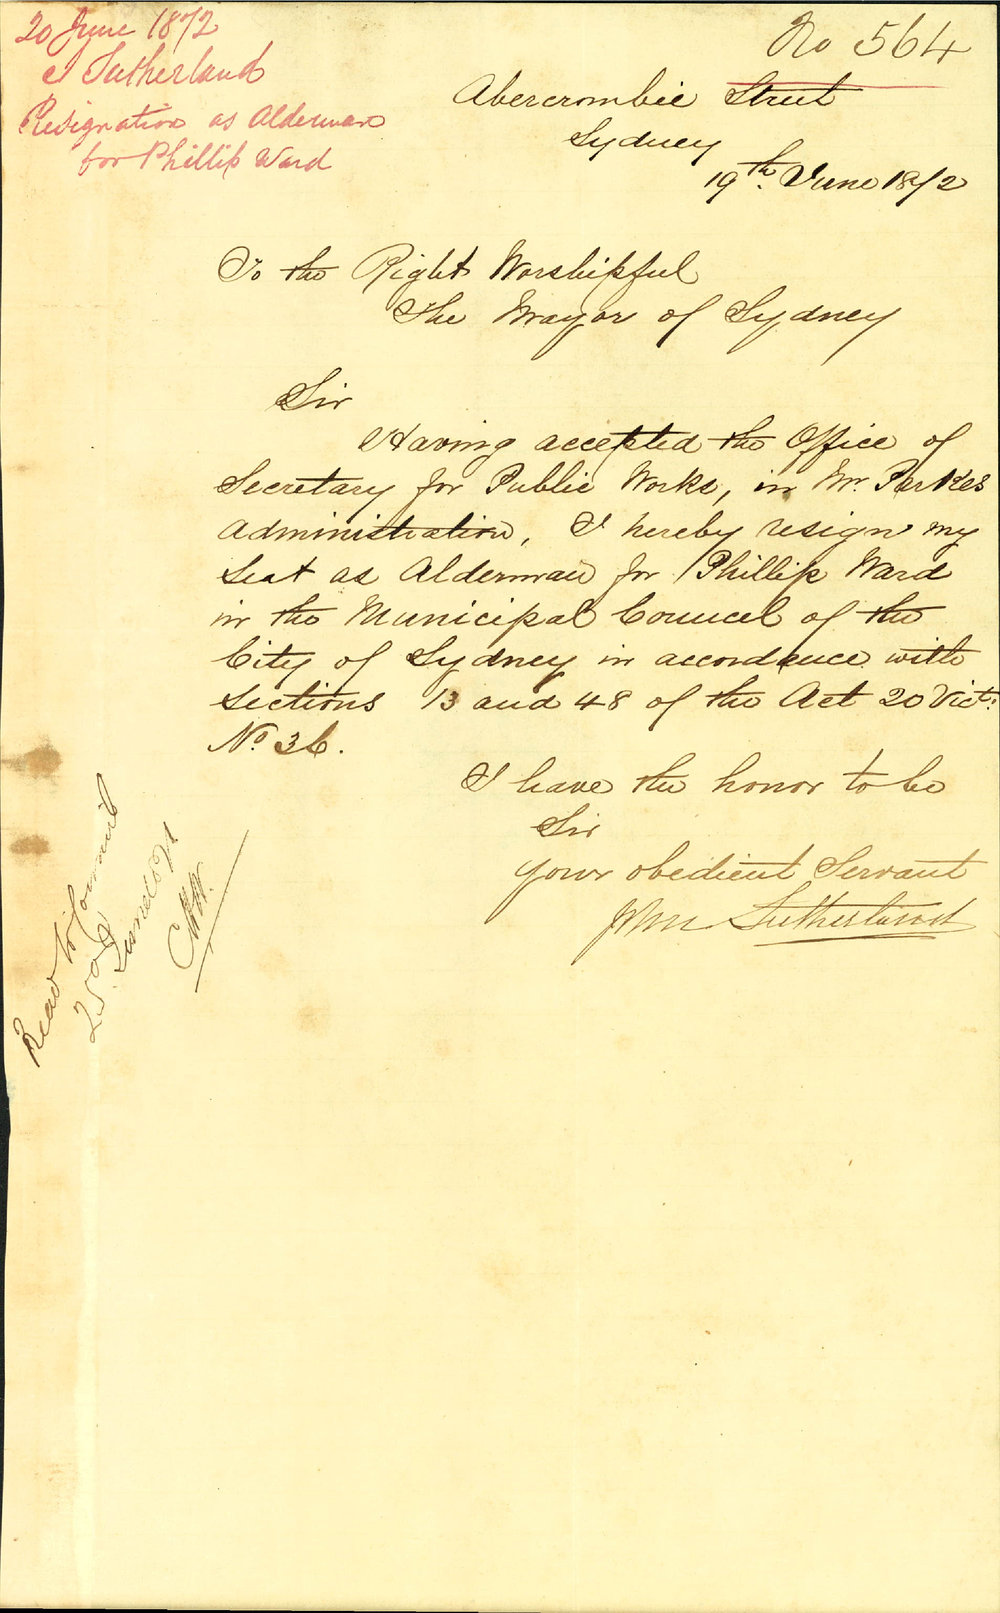 20 June 1872
J Sutherland
Resignation as Alderman
for Phillip Ward
No 564
Abercrombie Street
Sydney
19th. June 1872
To the Right Worshipful
The Mayor of Sydney
Sir
Having accepted the Office of
Secretary for Public Works, in Mr. Parkes
Administration, I hereby resign my
Seat as Alderman for Phillip Ward
in the Municipal Council of the
City of Sydney in accordance with
Sections 13 and 48 of the Act 20 Vict:
No. 36.
I have the honor to be
Sir
your obedient Servant
John Sutherland
Read to Council
25 June 1872